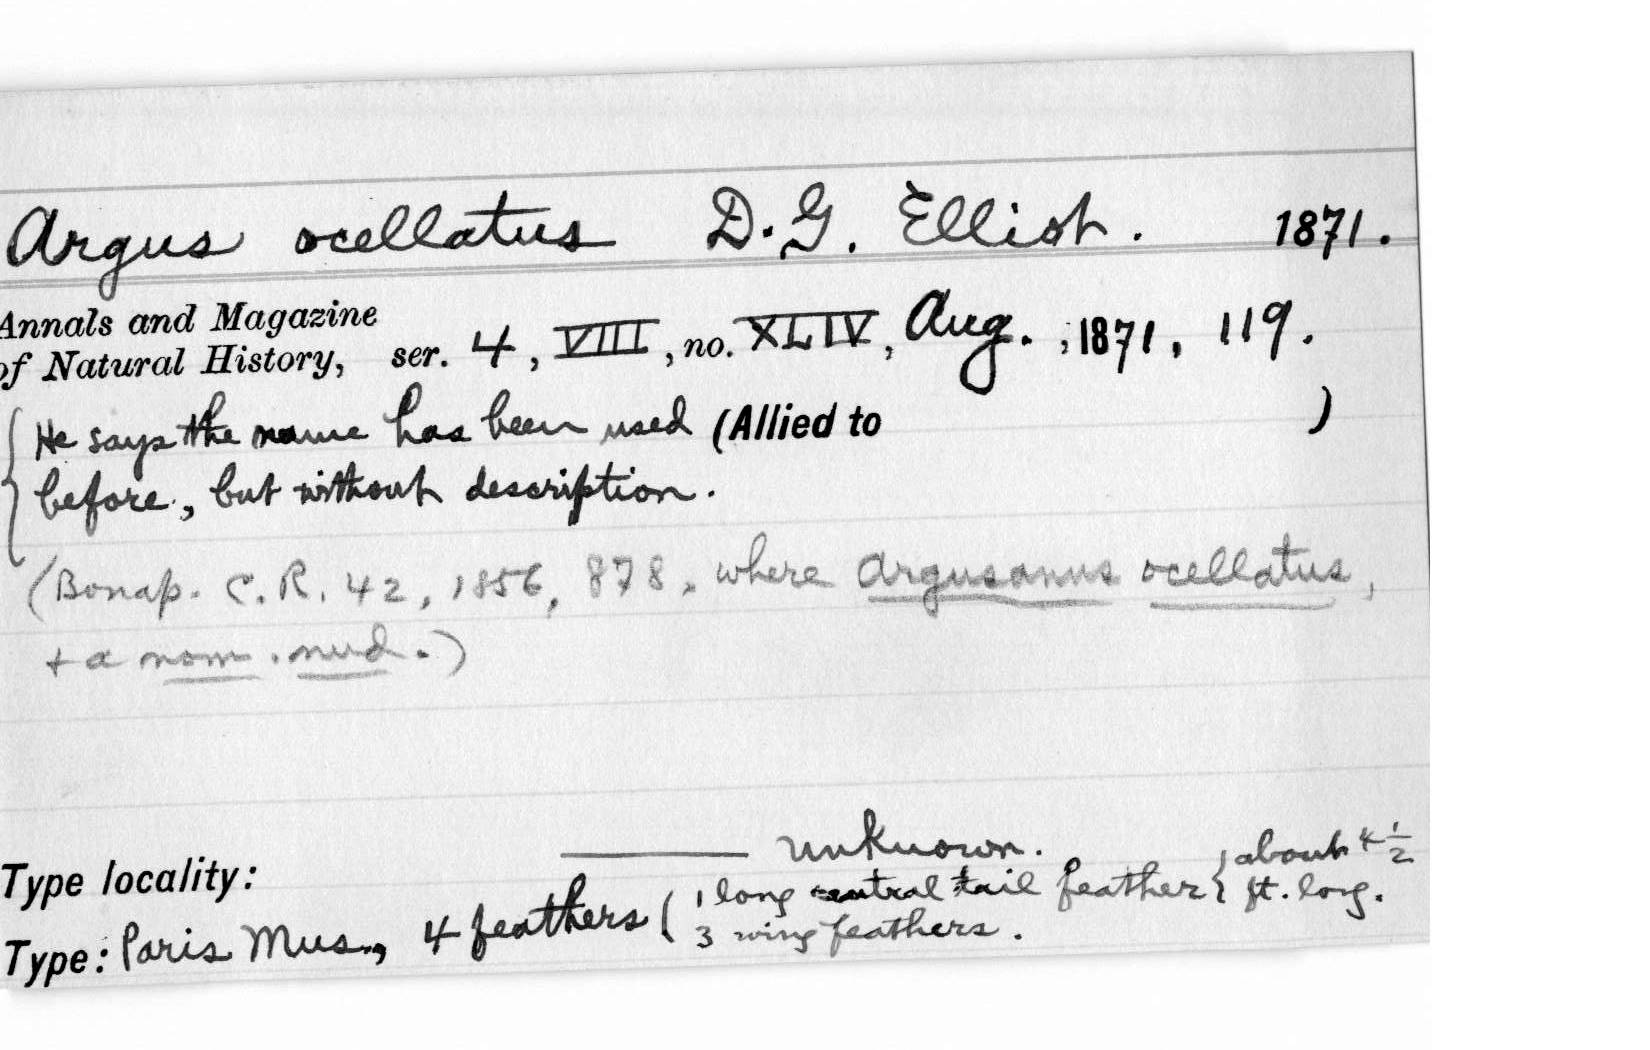 Argus ocellatus D. G. Elliot. 1871.
Annals and Magazine
of Natural History, ser. 4, VIII, no. XLIV, Aug. , 1871, 119.
He says the name has been used (Allied to )
before, but without description.
(Bonap. C. R. 42, 1856, 878, where Argusanus ocellatus,
+ a nom. nud.)
Type locality: unknown.
Type: Paris Mus., 4 feathers ( 1 long central tail feather { about 4 1/2 ft. long.
3 wing feathers.